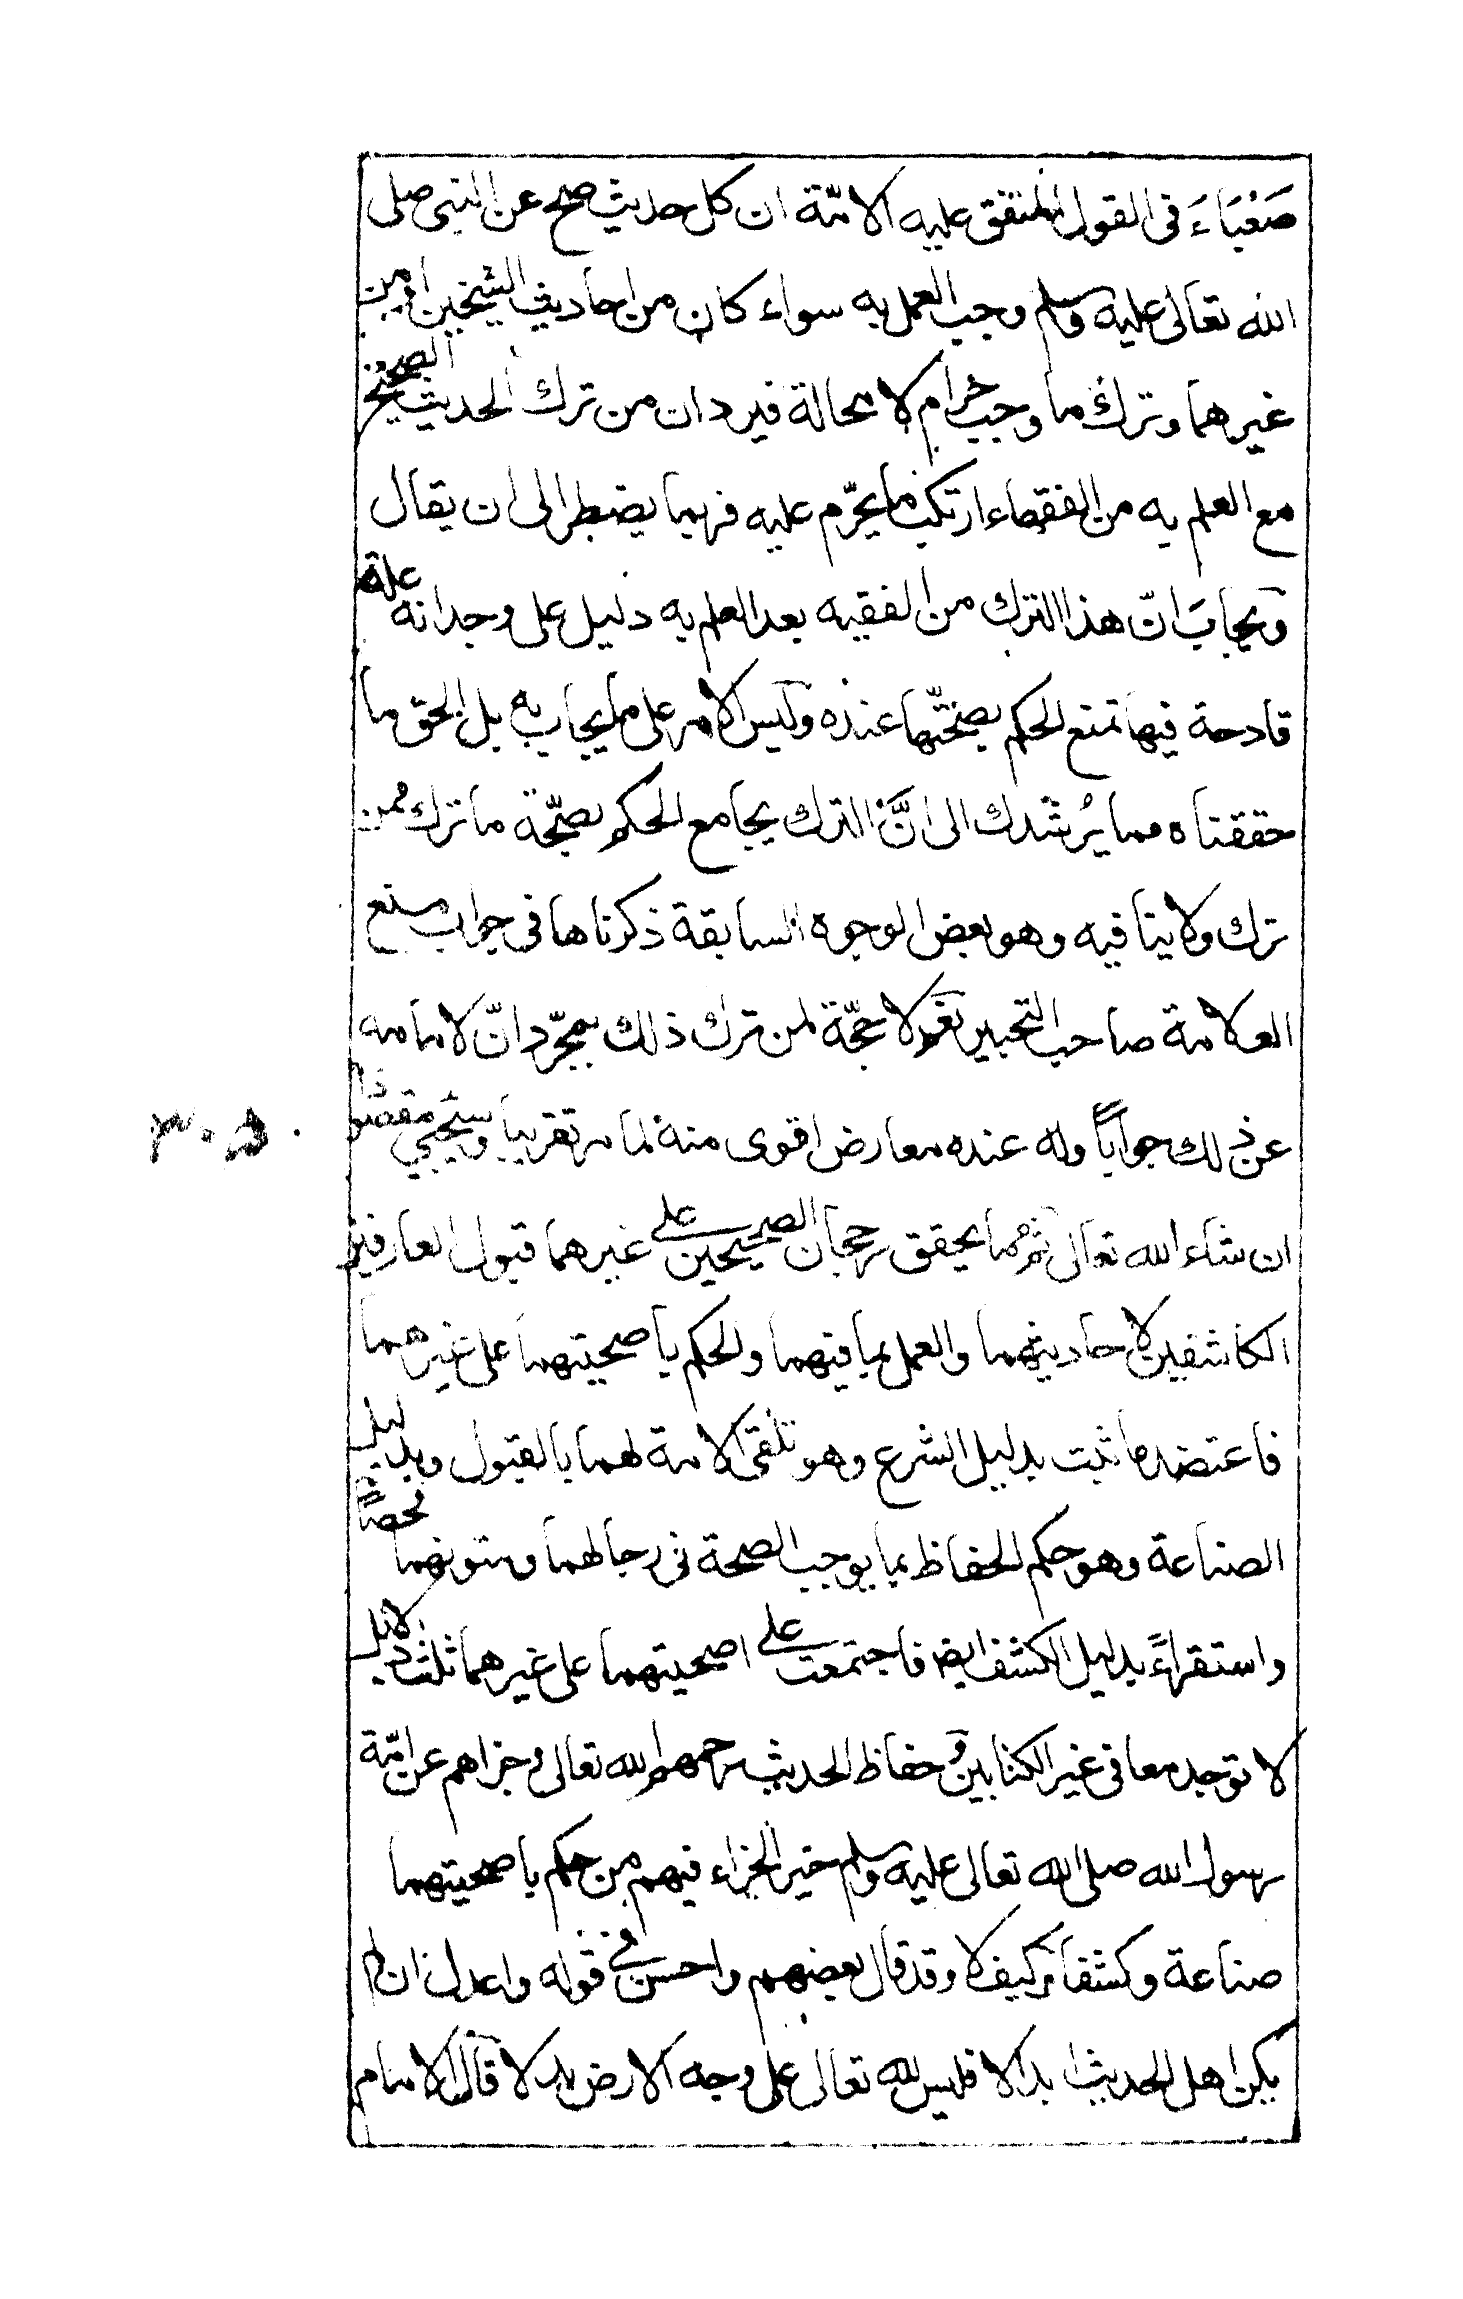 صَعْبَاءَ فى القول المتفق عليه الامّة ان كل حديث صح عن النبى صلى
الله تعالى عليه وسلم وجب العمل به سواء كان من احاديث الشيخين او من
غيرهما وترك ما وجب حرام لا محالة فيرد ان من ترك الحديث الصحيح
مع العلم به من الفقهاء ارتكب ما يحرّم عليه فربما يضطر الى ان يقال
ويجابَ انّ هذا الترك من الفقيه بعد العلم به دليل على وجدانه علة
قادحة فيها تمنع الحكم بصحّتها عنده وليس الامر على ما يجاب به بل الحق ما
حققناه مما يُرشدك الى انَّ الترك يجامع الحكم بصحّة ما ترك ممن
ترك ولا ينافيه وهو بعض الوجوه السابقة ذكرناها فى جواب منع
العلامة صاحب التحبير نعم لا حجّة لمن ترك ذلك بمجرّد انّ لامامه
عن ذلك جواباً وله عنده معارض اقوى منه لما مر تقريبا وسيجيى مقصدا
ان شاء الله تعالى ثم مما يحقق رجحان الصحيحين على غيرهما قبول العارفين
الكاشفين لاحاديثهما والعمل بما فيهما والحكم باصحيتهما على غيرهما
فاعتضد ما ثبت بدليل الشرع وهو تلقى الامة لهما بالقبول وبدليل
الصناعة وهو حكم الحفاظ بما يوجب الصحة فى رجالهما ومتونهما فحصاً
واستقراءً بدليل الكشف ايضا فاجتمعت على اصحيتهما على غيرهما ثلث دلايل
لا توجد معا فى غير الكتابين وحفاظ الحديث رحمهم الله تعالى وجزاهم عن امّة
رسول الله صلى الله تعالى عليه وسلم خير الجزاء فيهم من حكم باصحيتهما
صناعة وكشفا وكيف لا وقد قال بعضهم واحسن فى قوله واعدل ان لم
يكن اهل الحديث ابدالا فليس لله تعالى على وجه الارض بدلا قال الامام
٣٠٥